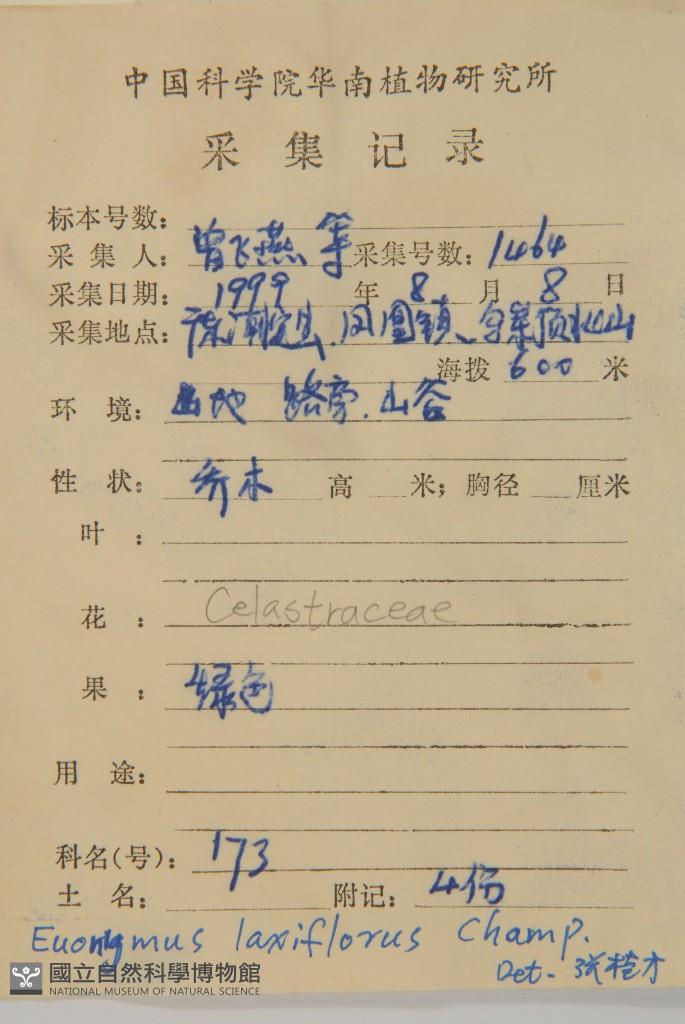 中国科学院华南植物研究所
采集记录
标本号数:
采集人: 曾飞燕等 采集号数: 1464
采集日期: 1999年8月8日
采集地点: 凤凰镇、乌 顶 山
海拨 600 米
环境: 山地 路旁.山谷
性状: 乔木 高 米; 胸径 厘米
叶:
花: Celastraceae
果: 绿色
用途:
科名(号): 173
土名: 附记: 4份
Euonymus laxiflorus Champ.
Det.
國立自然科學博物館
NATIONAL MUSEUM OF NATURAL SCIENCE